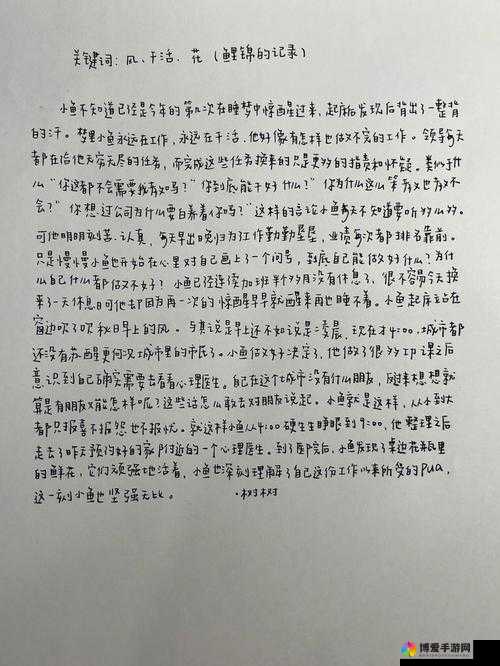 关键词：风、干活、花（鲤锦的记录）
小鱼不知道已经是今年的第几次在睡梦中惊醒过来，起床后发现后背出了一整背
的汗。梦里小鱼永远在工作，永远在干活，他好像有怎样也做不完的工作。领导每天
都在给他无穷无尽的任务，而完成这些任务换来的只是更多的指责和怀疑。类似于什
么“你这都不会需要我教你吗？”“你到底能干好什么？”你为什么这么笨教又也教不
会？”“你想过公司为什么要白养着你吗？”这样的言论小鱼每天不知道要听多么多。
可他明明刻苦、认真，每天早出晚归为了工作勤勤垦垦，业绩每次都排名靠前。
只是慢慢小鱼也开始在心里对自己画上了一个问号，到底自己能做好什么？为什
么自己什么都做不好了？小鱼已经连续加班半个多月没有休息了，很不容易今天换
来了一天休息日可他却因为再一次的惊醒早早就醒来再也睡不着。小鱼起床立站在
窗边吹了吹秋日早上的风。与其说是早上还不如说是凌晨，现在才4:00，城市都
还没有苏醒更何况城市里的市民了。小鱼做好决定了，他做了很多功课之后
意识到自己确实需要去看看心理医生。自己在这个城市没有什么朋友，回过来想想就
算是有朋友又能怎样呢？这些话怎么敢去对朋友说起。小鱼就是这样，从小到大
都只报喜不报怨也不报忧。就这样小鱼从4:00硬生生睁眼到9:00，他整理之后
走去了昨天预约好的家附近的一个心理医生。到了医院后，小鱼发现了桌边花瓶里
的鲜花，它们顽强地活着，小鱼也深刻理解了自己这份工作以来所受的PUA，
这一刻小鱼也坚强无比。 ·树树
博爱手游网